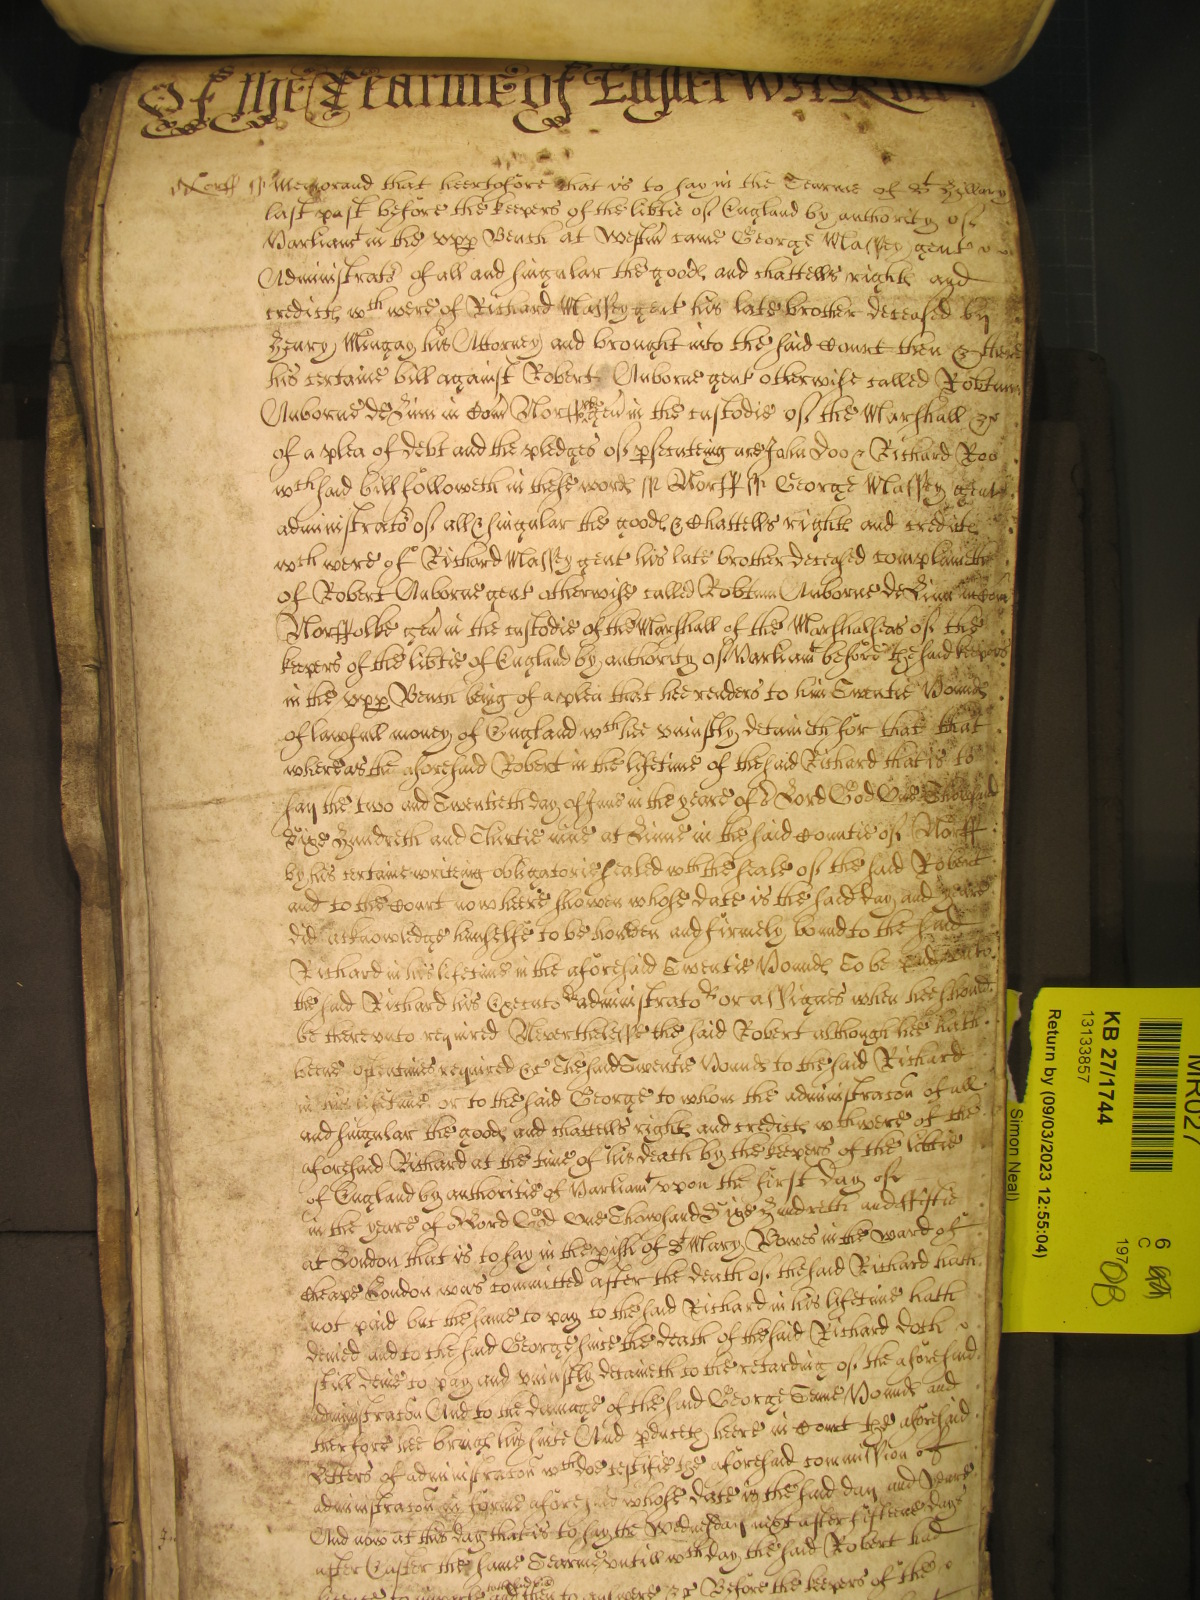 Of the Tearme of Easter
Norff ss Memorand that heertofore that is to say in the Tearme of St Hillary
last past before the keepers of the libtie of England by authority of
Parliamt in the upp Bench at Westm came George Massey gent
Administrator of all and singular the goods and chattells rights and
credits wch were of Richard Massey gent his late brother deceased by
Henry Mingay his Attorney and brought into the said Court then & there
his certaine bill against Robert Anborne gent otherwise called Robtum
Anborne de Linn in Com Norff gen in the custodie of the Marshall &c
of a plea of debt and the pledges of psecuting are John Doo & Richard Roo
wch said bill followeth in these words ss Norff ss George Massey gent
administrator of all & singular the goods & Chattells rights and credits
wch were of Richard Massey gent his late brother deceased complaineth
of Robert Anborne gent otherwise called Robtum Anborne de Linn in Com
Norffolke gen in the custodie of the Marshall of the Marshalseas of the
keepers of the libtie of England by authority of Parliamt before the said keepers
in the upp Bench being of a plea that hee renders to him Twentie Pounds
of lawfull money of England wch hee uniustly detaineth for that that
whereas the aforesaid Robert in the lifetime of the said Richard that is to
say the two and Twentieth day of June in the yeare of or Lord God One Thousand
Sixe Hundreth and Thirtie nine at Linne in the said Countie of Norff
by his certaine writing obligatorie sealed wth the seale of the said Robert
and to the Court now heere shewen whose date is the said day and yeare
did acknowledge himselfe to be houlden and firmely bound to the said
Richard in his lifetime in the aforesaid Twentie Pounds To be paid unto
the said Richard his Executors administrators or assignes when hee should
be thereunto required Neverthelesse the said Robert although hee hath
beene oftentimes required &c The said Twentie Pounds to the said Richard
in his lifetime or to the said George to whom the administracon of all
and singular the goods and chattells rights and credits wch were of the
aforesaid Richard at the time of his death by the keepers of the libtie
of England by authoritie of Parliamt upon the first day of
in the yeare of or Lord God One Thowsand Sixe Hundreth and ffiftie
at London that is to say in the pish of St Mary Bowes in the ward of
Cheape London was committed after the death of the said Richard hath
not paid but the same to pay to the said Richard in his lifetime hath
denied and to the said George since the death of the said Richard doth
still denie to pay and uniustly detaineth to the retarding of the aforesaid
administracon And to the damage of the said George Tenne Pounds and
therfore hee brings his suite And pduceth heere in Court the aforesaid
Letters of administracon wch doe testifie the aforesaid commission of
administracon in forme aforesaid whose date is the said day and yeare
And now at this day that is to say the Wednesday next after fifteene dayes
after Easter the same Tearme untill wch day the said Robert had
then to answere &c Before the keepers of the
KB 27/1744
13133857
Return by (09/03/2023 12:55:04)
Simon Neal)
MR027
6
C
197